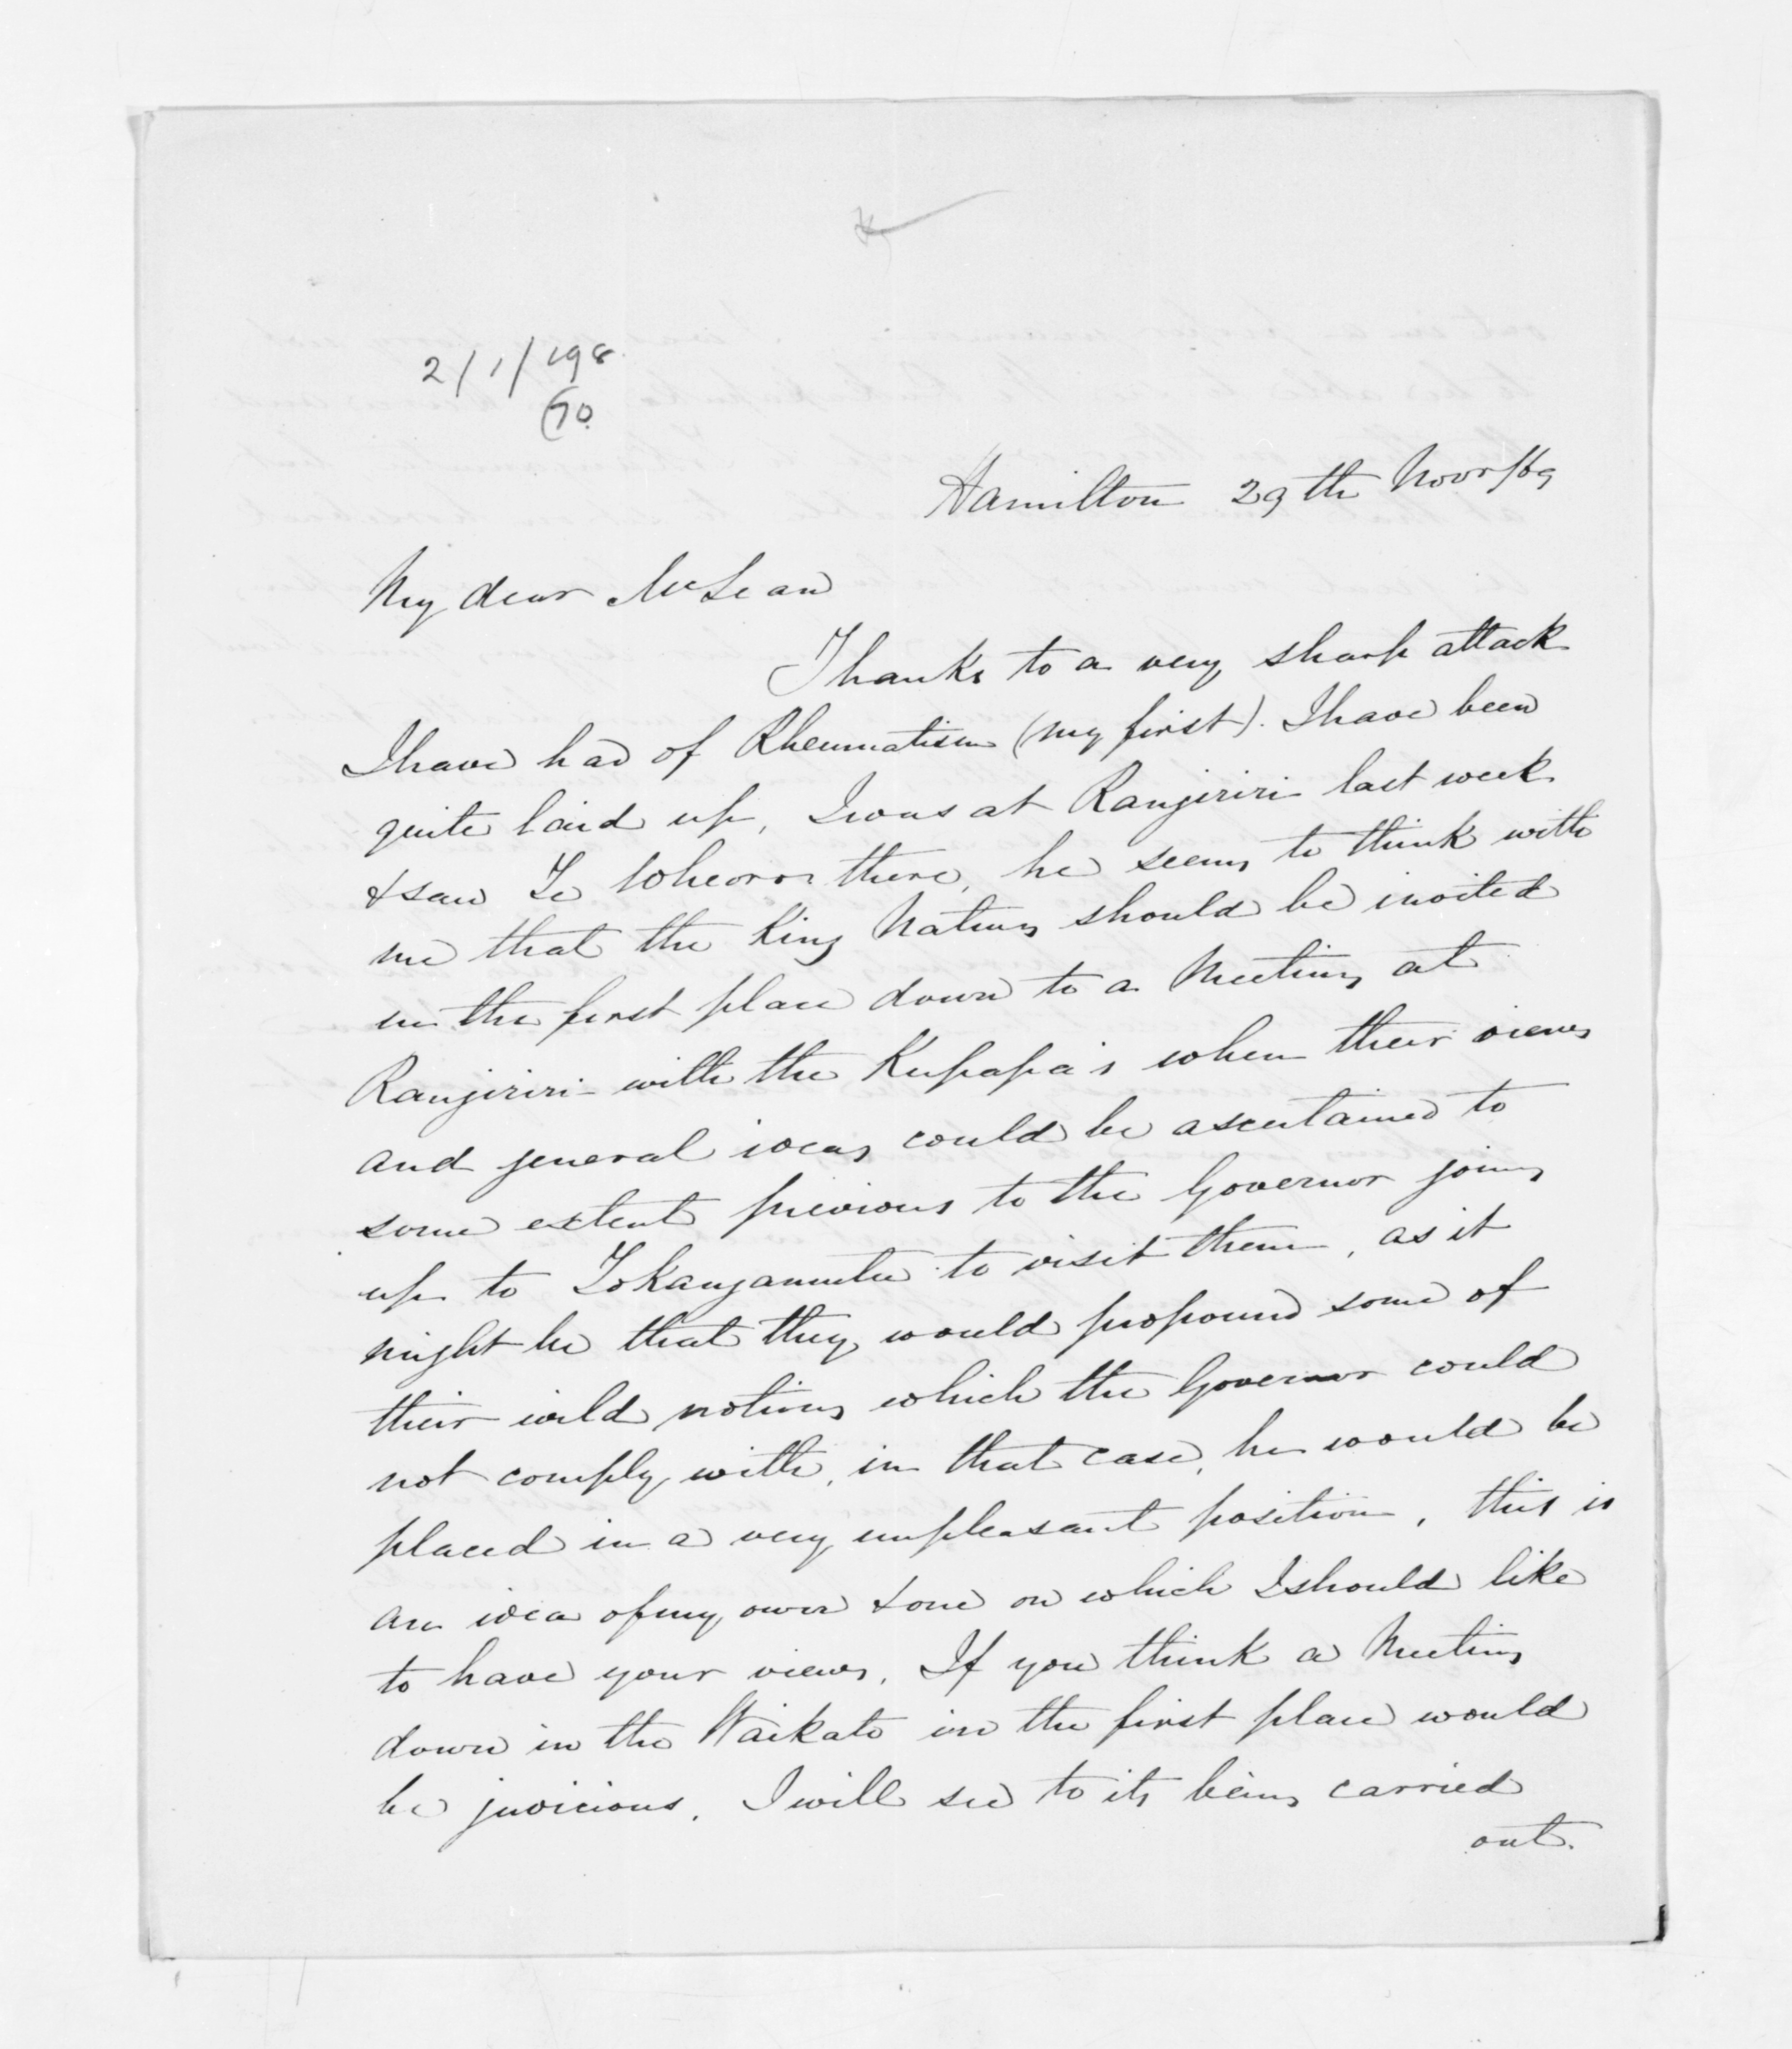 2/1/198
(70.
Hamilton 29th Novr/69
My dear McLean
Thanks to a very sharp attack
I have had of Rheumatism (my first). I have been
quite laid up, I was at Rangiriri last week
& saw Te Wheoro there, he seems to think with
me that the King Natives should be invited
in the first place down to a Meeting at
Rangiriri with the Kupapa's when their views
and general ideas could be ascertained to
some extent previous to the Governor going
up to Tokangamutu to visit them, as it
might be that they would propound some of
their wild notions which the Governor could
not comply with, in that case, he would be
placed in a very unpleasant position, this is
an idea of my own & one on which I should like
to have your views. If you think a Meeting
down in the Waikato in the first place would
be judicious, I will see to its being carried
out.